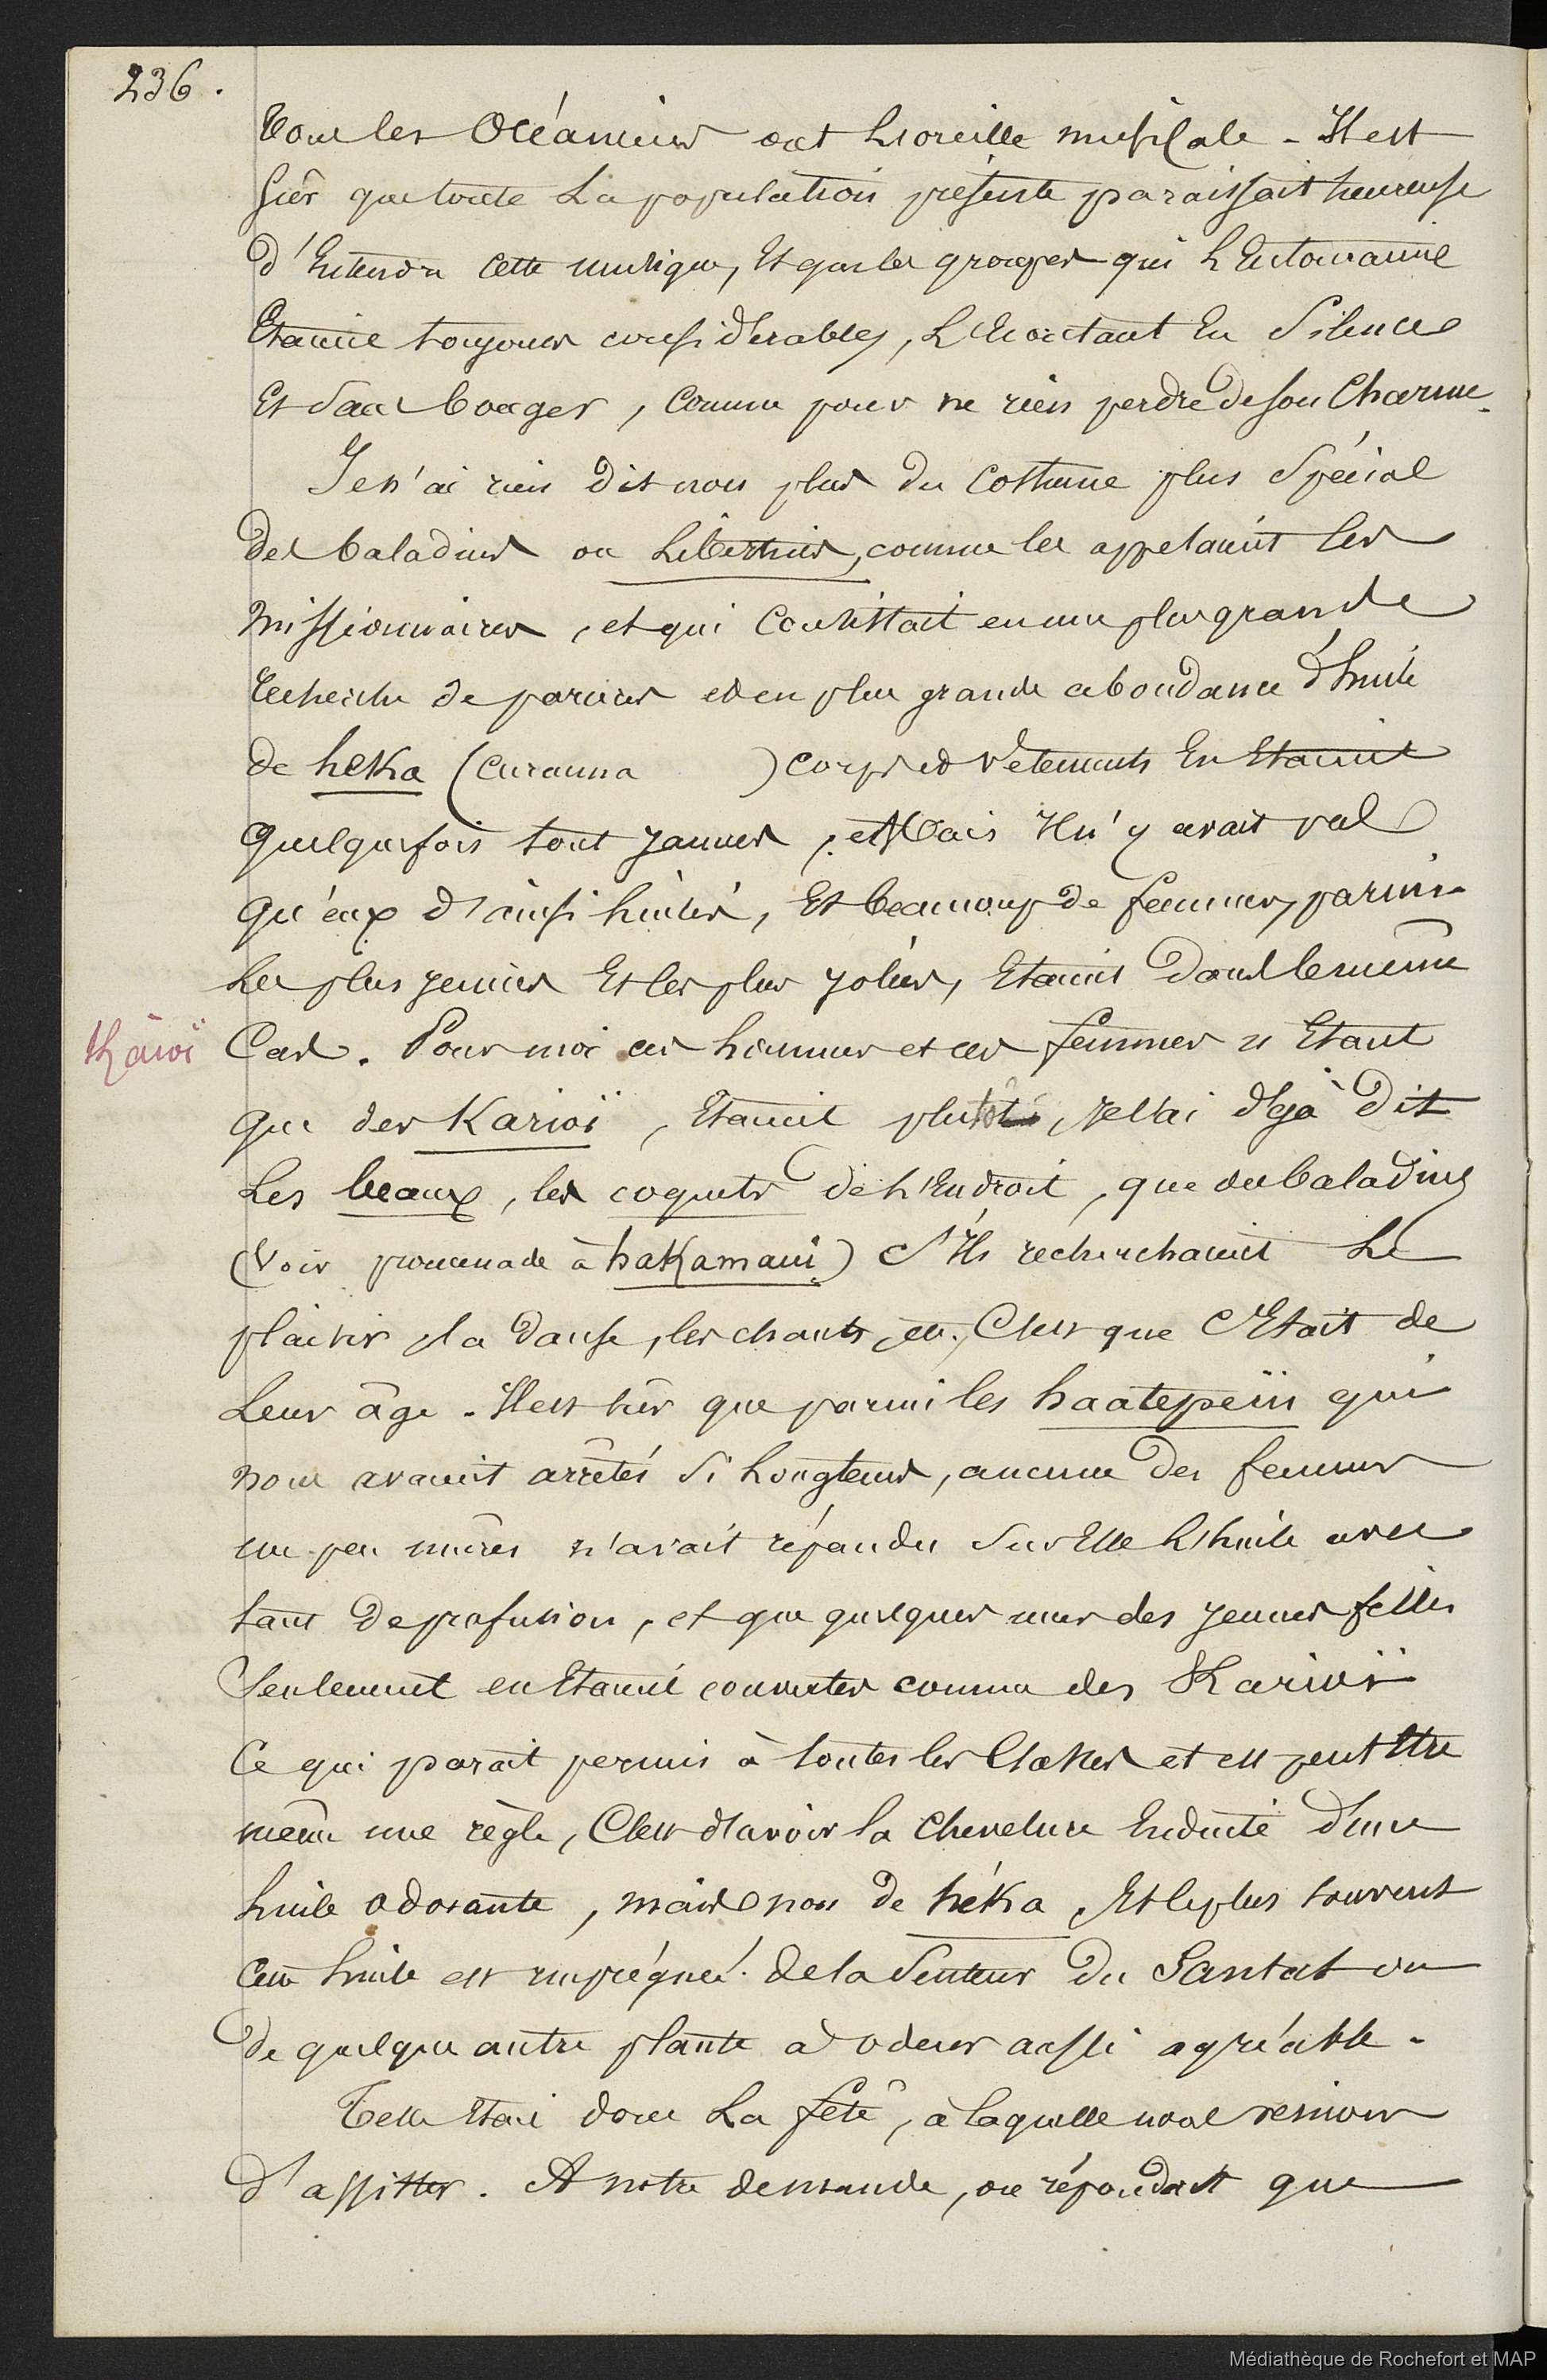 236.
Tous les Océaniens ont l'oreille musicale - Il est
sûr que toute la population présente paraissait heureuse
d'Entendre cette musique, Et que les groupes qui l'Entouraient
Etaient toujours considérables, l'Ecoutant En Silence
Et Sans bouger, comme pour ne rien perdre de son Charme.
Je n'ai rien dit non plus du costume plus Spécial
des baladins ou Libertins, comme les appelaient les
missionnaires, et qui consistait en une plus grande
recherche de parures et en plus grande abondance d'huile
de heka (curcuma ) corps et vêtements En Etaient
quelquefois tout jaunes, Mais Il n'y avait pas
qu'eux d'ainsi huilés, Et beaucoup de femmes, parmi
les plus jeunes Et les plus jolies, Etaient dans le même
Karioï
Cas. Pour moi ces hommes et ces femmes n'Etant
que des Karioï, Etaient plutôt, je l'ai déjà dit
Les beaux, les coquets de l'Endroit, que des baladins
(Voir promenade à hakamaui) S'Ils recherchaient le
plaisir, la danse, les chants, etc., C'est que C'Etait de
Leur âge. Il est sûr que parmi les haatepeiu qui
nous avaient arrêtés si longtems, aucune des femmes
un peu mûres n'avait répandu Sur Elle l'huile avec
tant de profusion, et que quelques unes des jeunes filles
Seulement en Etaient couvertes comme des Karioï
Ce qui parait permis à toutes les Classes et est peut Etre
même une règle, C'est d'avoir la chevelure Enduite d'une
huile odorante, mais non de héka, Et le plus souvent
cette huile est imprégnée de la Senteur du Santal ou
de quelque autre plante à odeur aussi agréable.
Telle Etait donc La fête, à laquelle nous venions
d'assister. A notre demande, on répondait que
Médiathèque de Rochefort et MAP